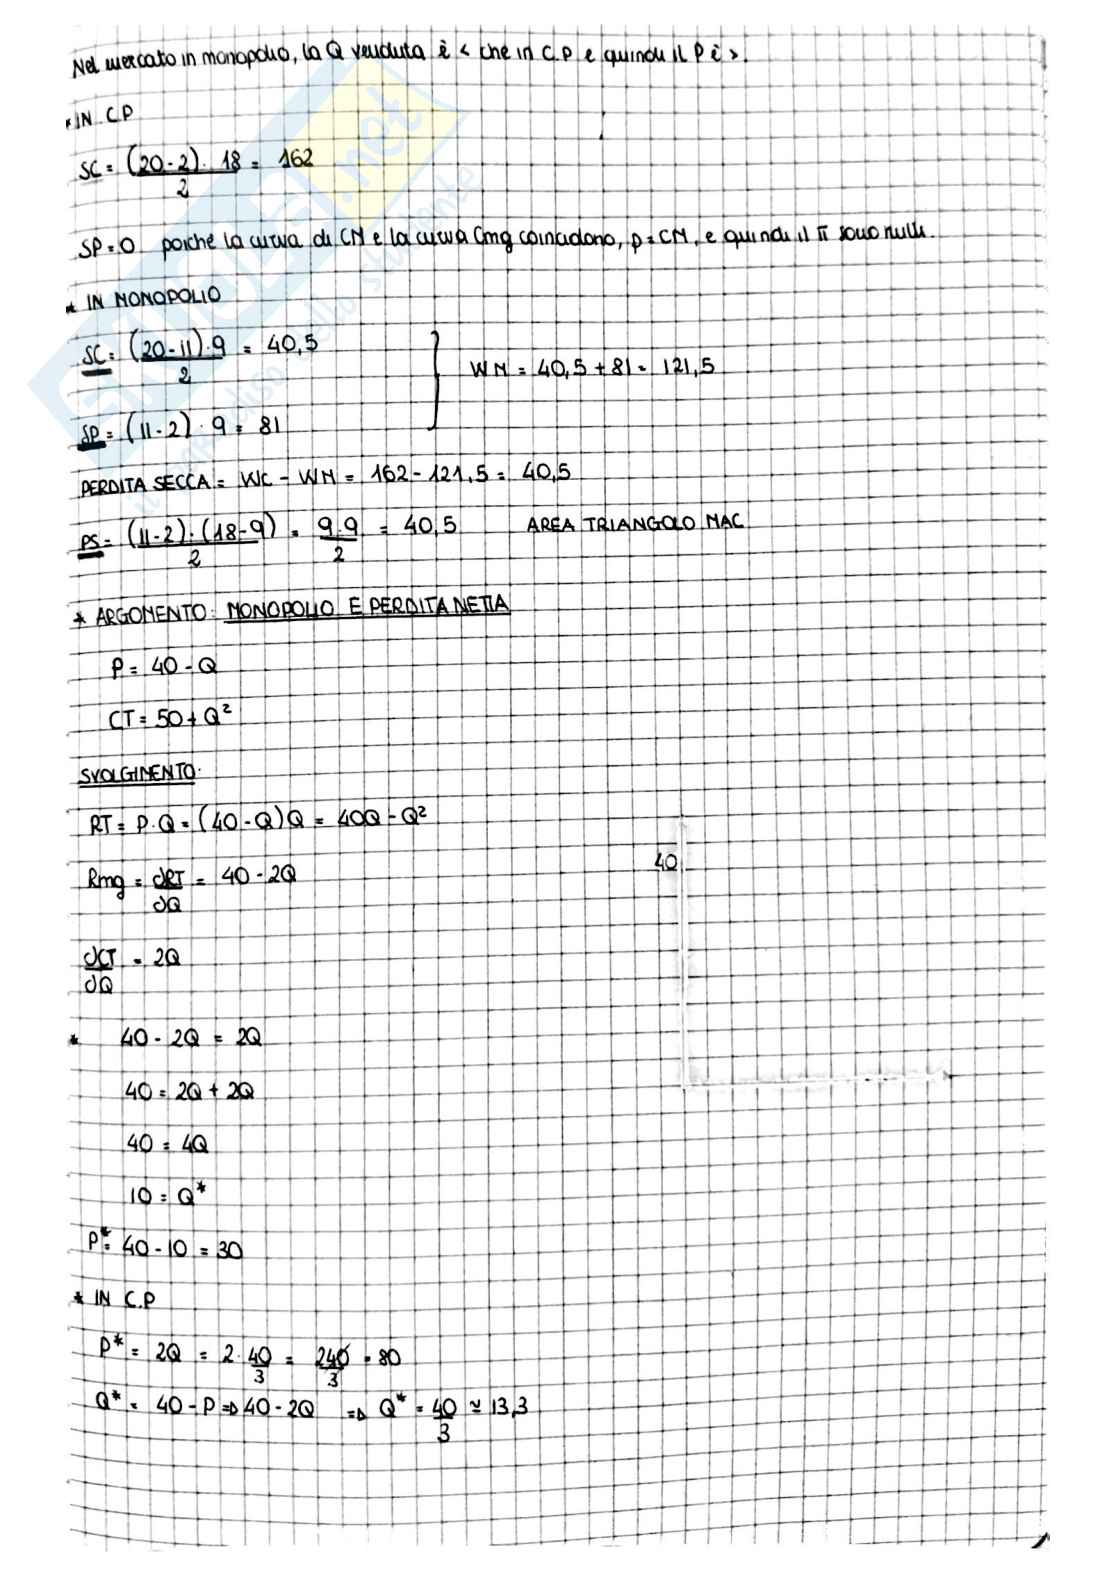 Nel mercato in monopolio, la Q venduta è < che in C.P e quindi il P è >.
* IN C.P
SC = (20-2) · 18 = 162
2
SP = 0 poiché la curva di CM e la curva Cmg coincidono, p = CM, e quindi il π sono nulli.
* IN MONOPOLIO
SC = (20-11)·9 = 40,5
2
WM = 40,5 + 81 = 121,5
SP = (11-2) · 9 = 81
PERDITA SECCA = WC - WM = 162 - 121,5 = 40,5
PS = (11-2) · (18-9) = 9·9 = 40,5 AREA TRIANGOLO MAC
2 2
* ARGOMENTO: MONOPOLIO E PERDITA NETTA
P = 40 - Q
CT = 50 + Q²
SVOLGIMENTO
RT = P·Q = (40-Q)Q = 40Q - Q²
Rmg = ∂RT = 40 - 2Q
∂Q
40
∂CT = 2Q
∂Q
* 40 - 2Q = 2Q
40 = 2Q + 2Q
40 = 4Q
10 = Q*
P* = 40 - 10 = 30
* IN C.P
P* = 2Q = 2 · 40 = 240 = 80
3 3
Q* = 40 - P ⇒ 40 - 2Q ⇒ Q* = 40 ≃ 13,3
3